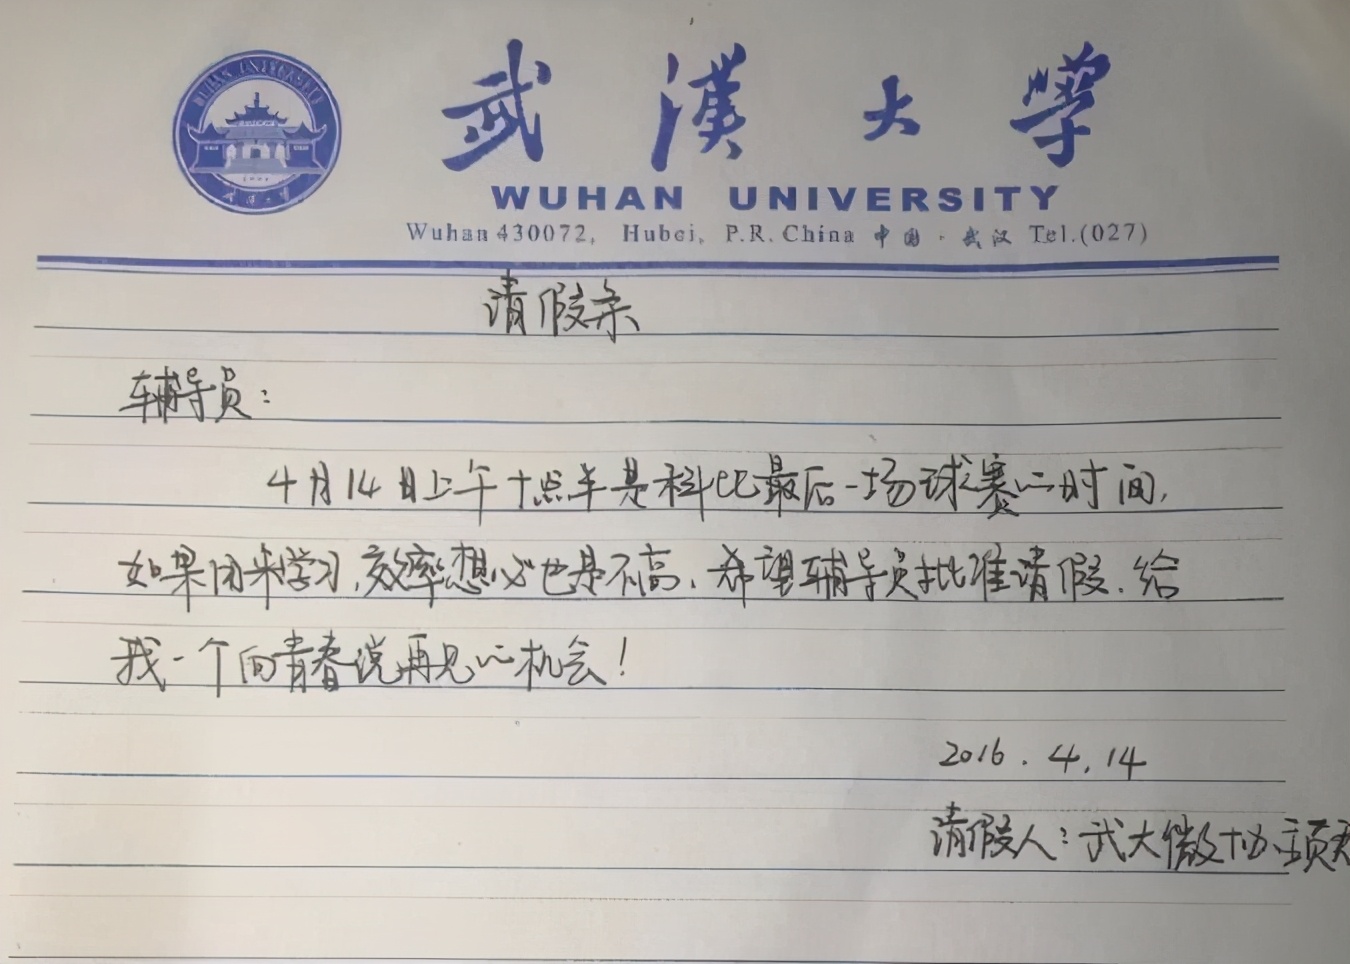 WUHAN UNIVERSITY
武漢大學
WUHAN UNIVERSITY
Wuhan 430072, Hubei, P.R.China 中国·武汉 Tel.(027)
请假条
辅导员:
4月14日上午十点半是科比最后一场球赛的时间,
如果闭来学习,效率想必也是不高,希望辅导员批准请假,给
我一个向青春说再见的机会!
2016.4.14
请假人:武大微协